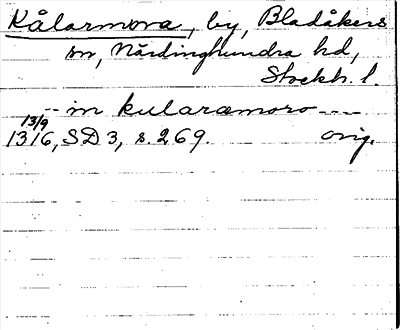 Kålarmora, by, Bladåkers
sn, Närdinghundra hd,
Stockh. l.
-- in kularamoro ----
13/9
1316, SD 3, s. 269. orig.